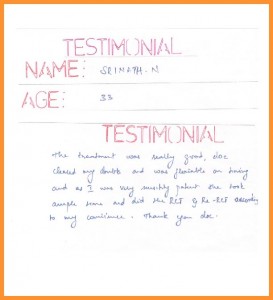 TESTIMONIAL
NAME: SRINATH. N
AGE: 33
TESTIMONIAL
The treatment was really good, doc
cleared my doubts and was flexible on timing
and as I was very sensitive patient she took
ample time and did the RCT & Re-RCT according
to my convience. Thank you doc.